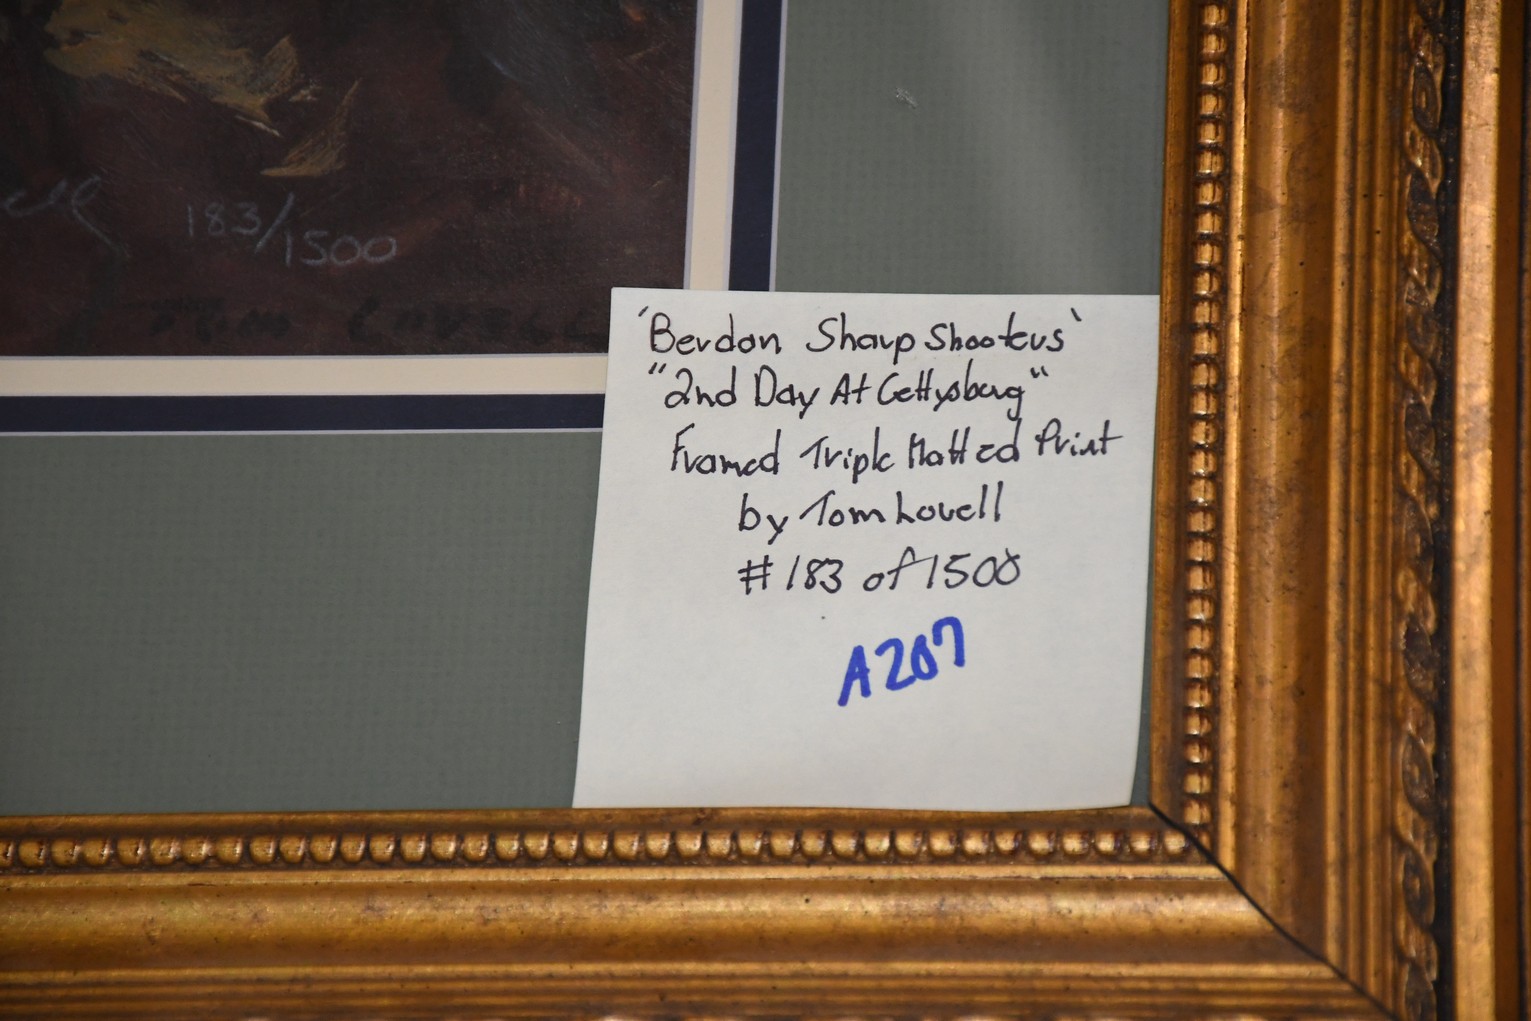 183/1500
Tom Lovell
'Berdan Sharp Shooters'
"2nd Day At Gettysburg"
Framed Triple Matted Print
by Tom Lovell
#183 of 1500
A207